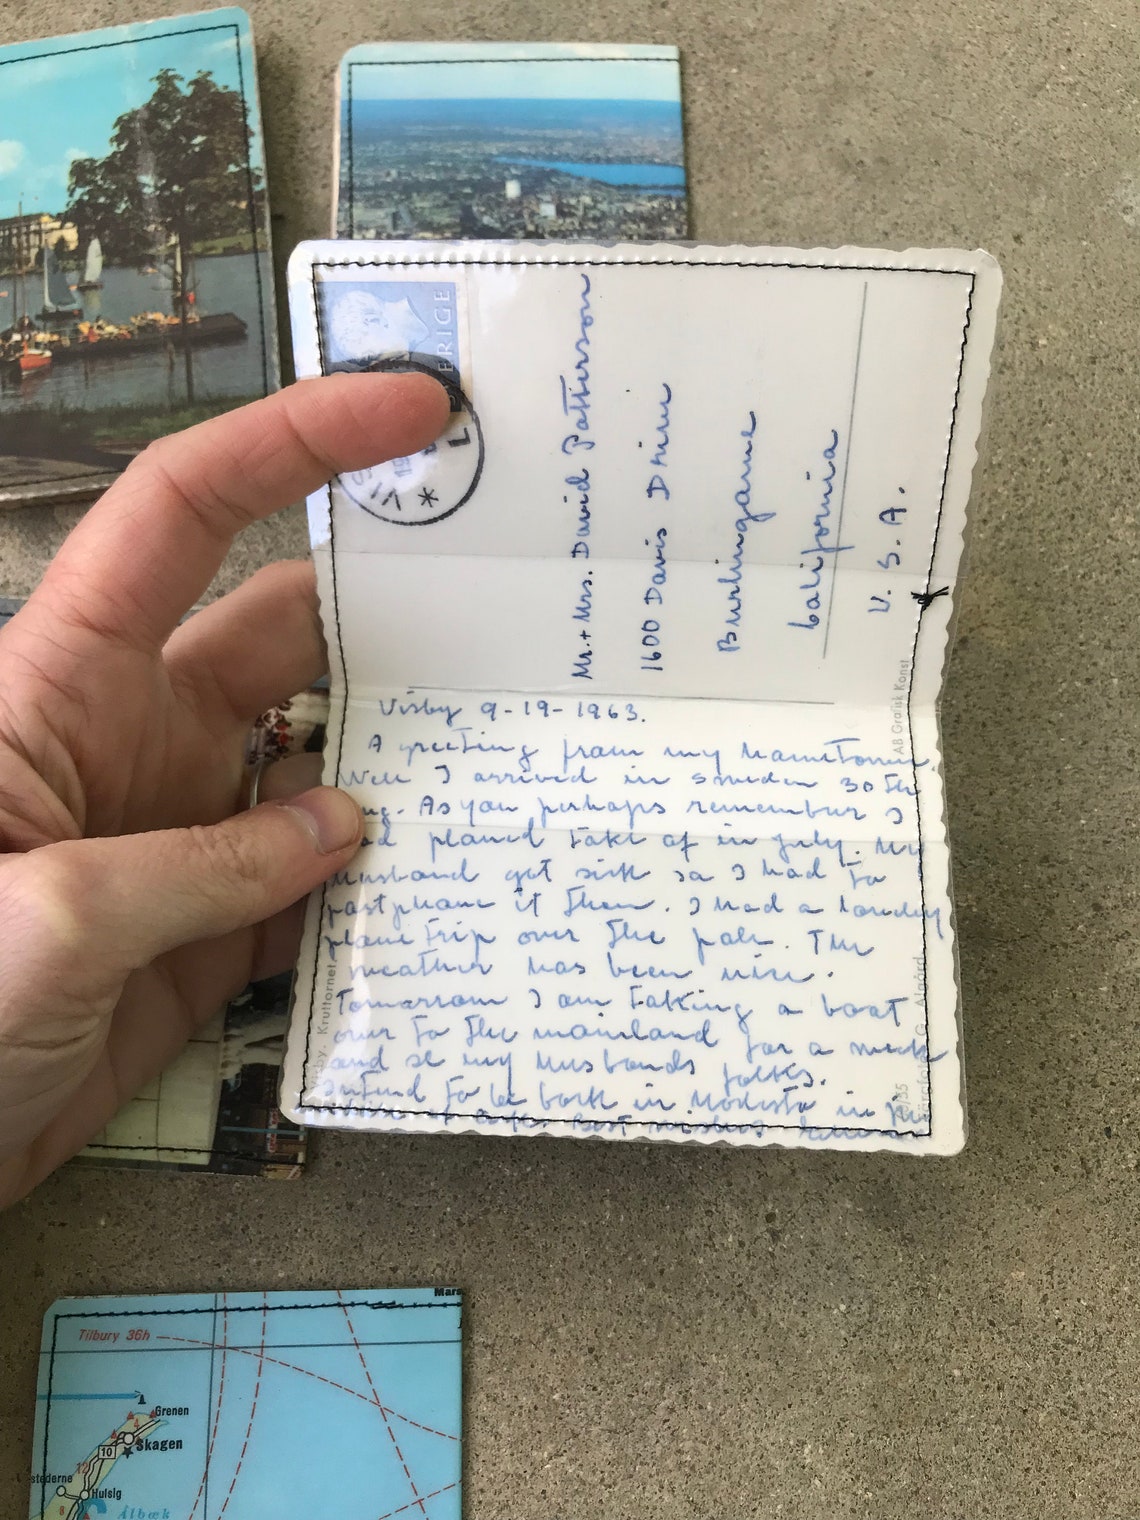 SVERIGE
VISBY
19
L
Mr. + Mrs. David Patterson
1600 Davis Drive
Burlingame
California
U. S. A.
Visby 9-19-1963.
A greeting from my hometown.
Well I arrived in Sweden 30 th
Aug. As you perhaps remember I
had planed take of in July. My
husband got sick so I had to
postphone it then. I had a lovely
plane trip over the pole. The
weather has been nice.
Tomorrow I am taking a boat
over to the mainland for a week
and se my husbands folks.
Intend to be back in Modesto in the
Best wishes
AB Grafisk Konst
Visby. Kruttornet
Mars
Tilbury 36h
Grenen
10
Skagen
Hulsig
Ålbæk